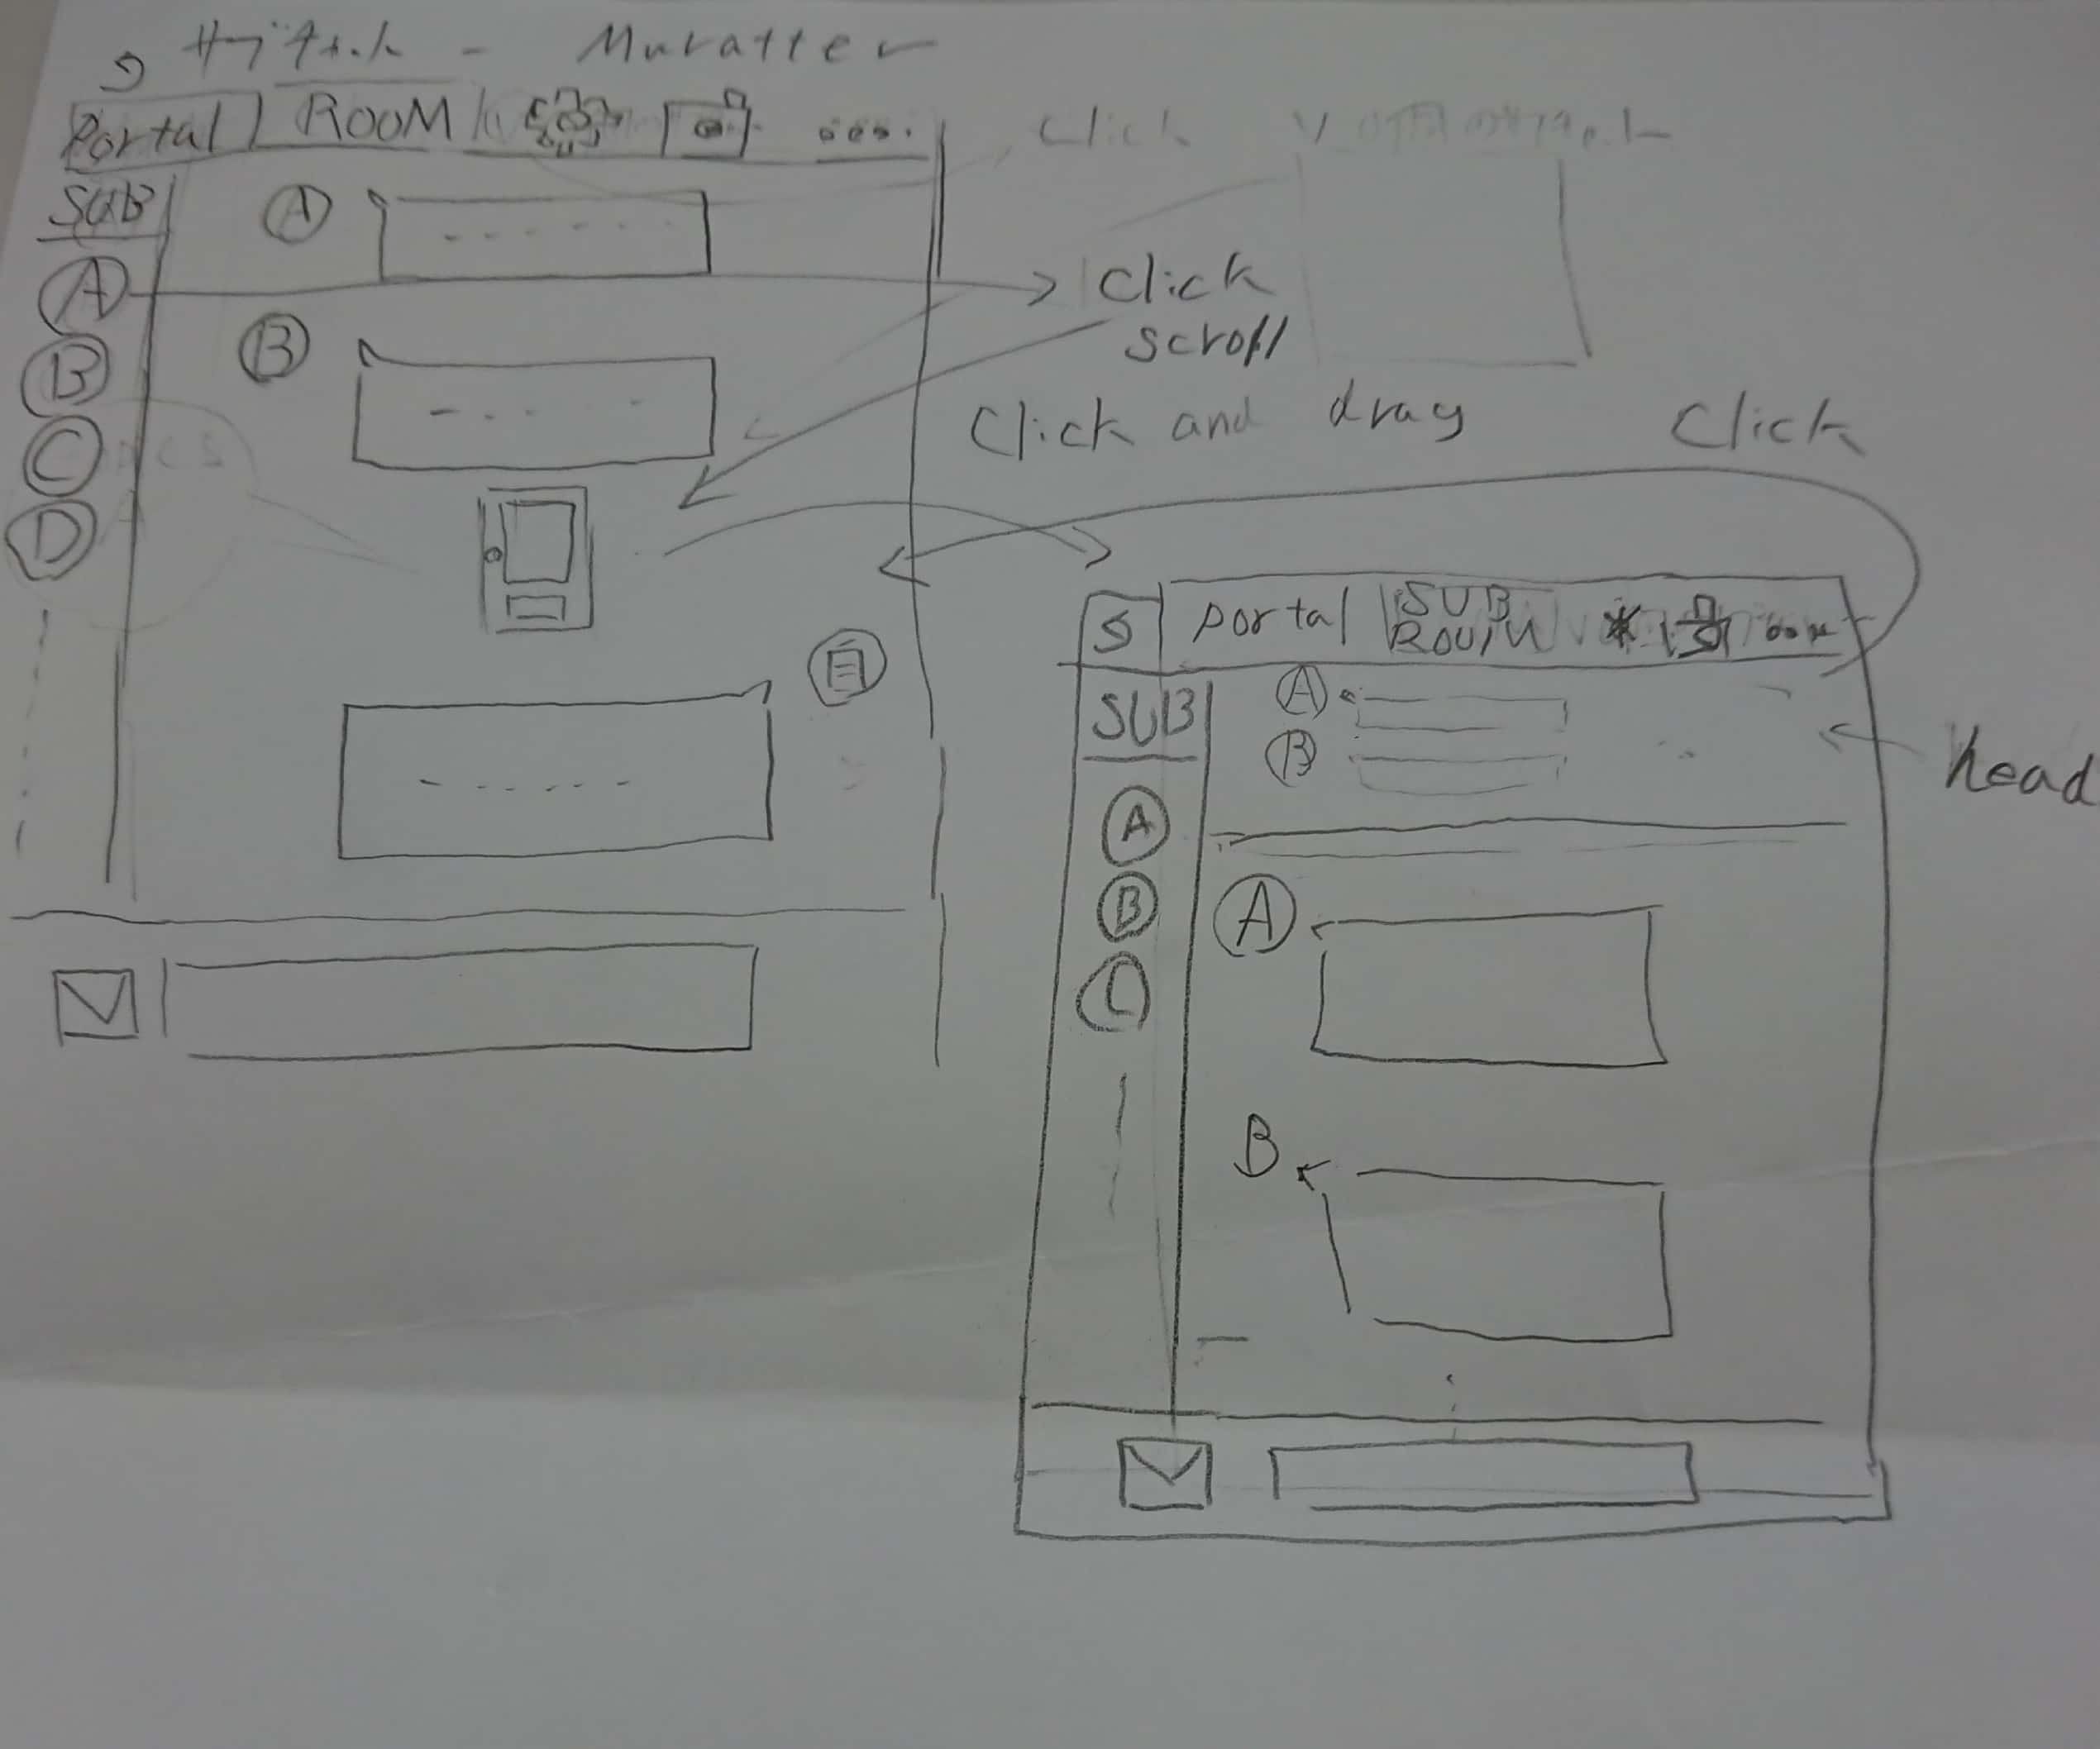 Muratter
Portal ROOM
SUB
A
A
B
B
C
D
自
Click
Click
scroll
Click and drag
Click
S portal SUB
ROOM
SUB
A
B
head
A
B
C
A
B